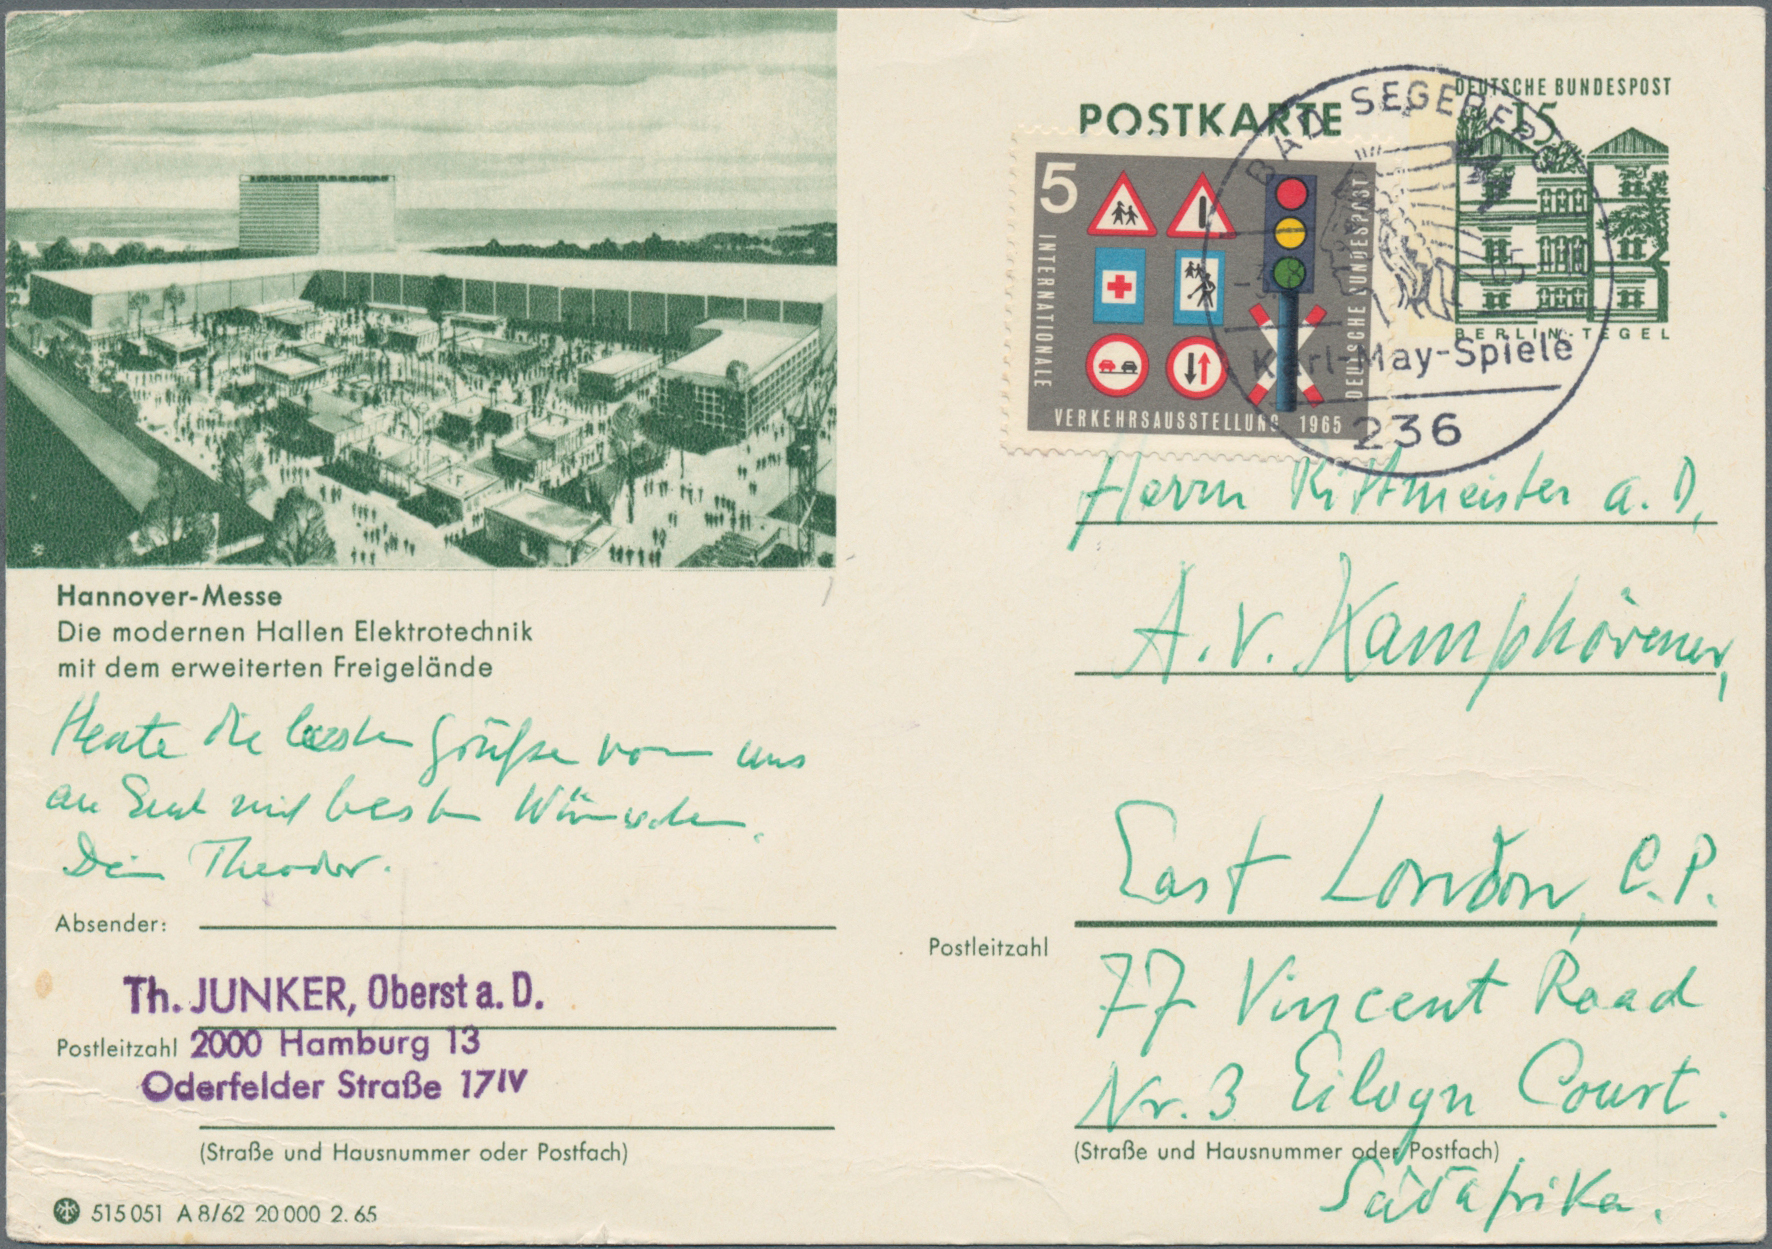 Hannover-Messe
Die modernen Hallen Elektrotechnik
mit dem erweiterten Freigelände
Heute die besten Grüße von uns
an Euch mit besten Wünschen.
Dein Theodor.
Absender:
Th. JUNKER, Oberst a. D.
Postleitzahl 2000 Hamburg 13
Oderfelder Straße 17 IV
(Straße und Hausnummer oder Postfach)
515 051 A 8/62 20 000 2. 65
POSTKARTE
DEUTSCHE BUNDESPOST
15
BERLIN-TEGEL
5
INTERNATIONALE
VERKEHRSAUSSTELLUNG 1965
DEUTSCHE BUNDESPOST
BAD SEGEBERG
Karl-May-Spiele
236
Herrn Rittmeister a. D.
A. v. Kamphövener,
East London, C.P.
Postleitzahl
77 Vincent Road
Nr. 3 Eilogn Court.
(Straße und Hausnummer oder Postfach)
Südafrika.